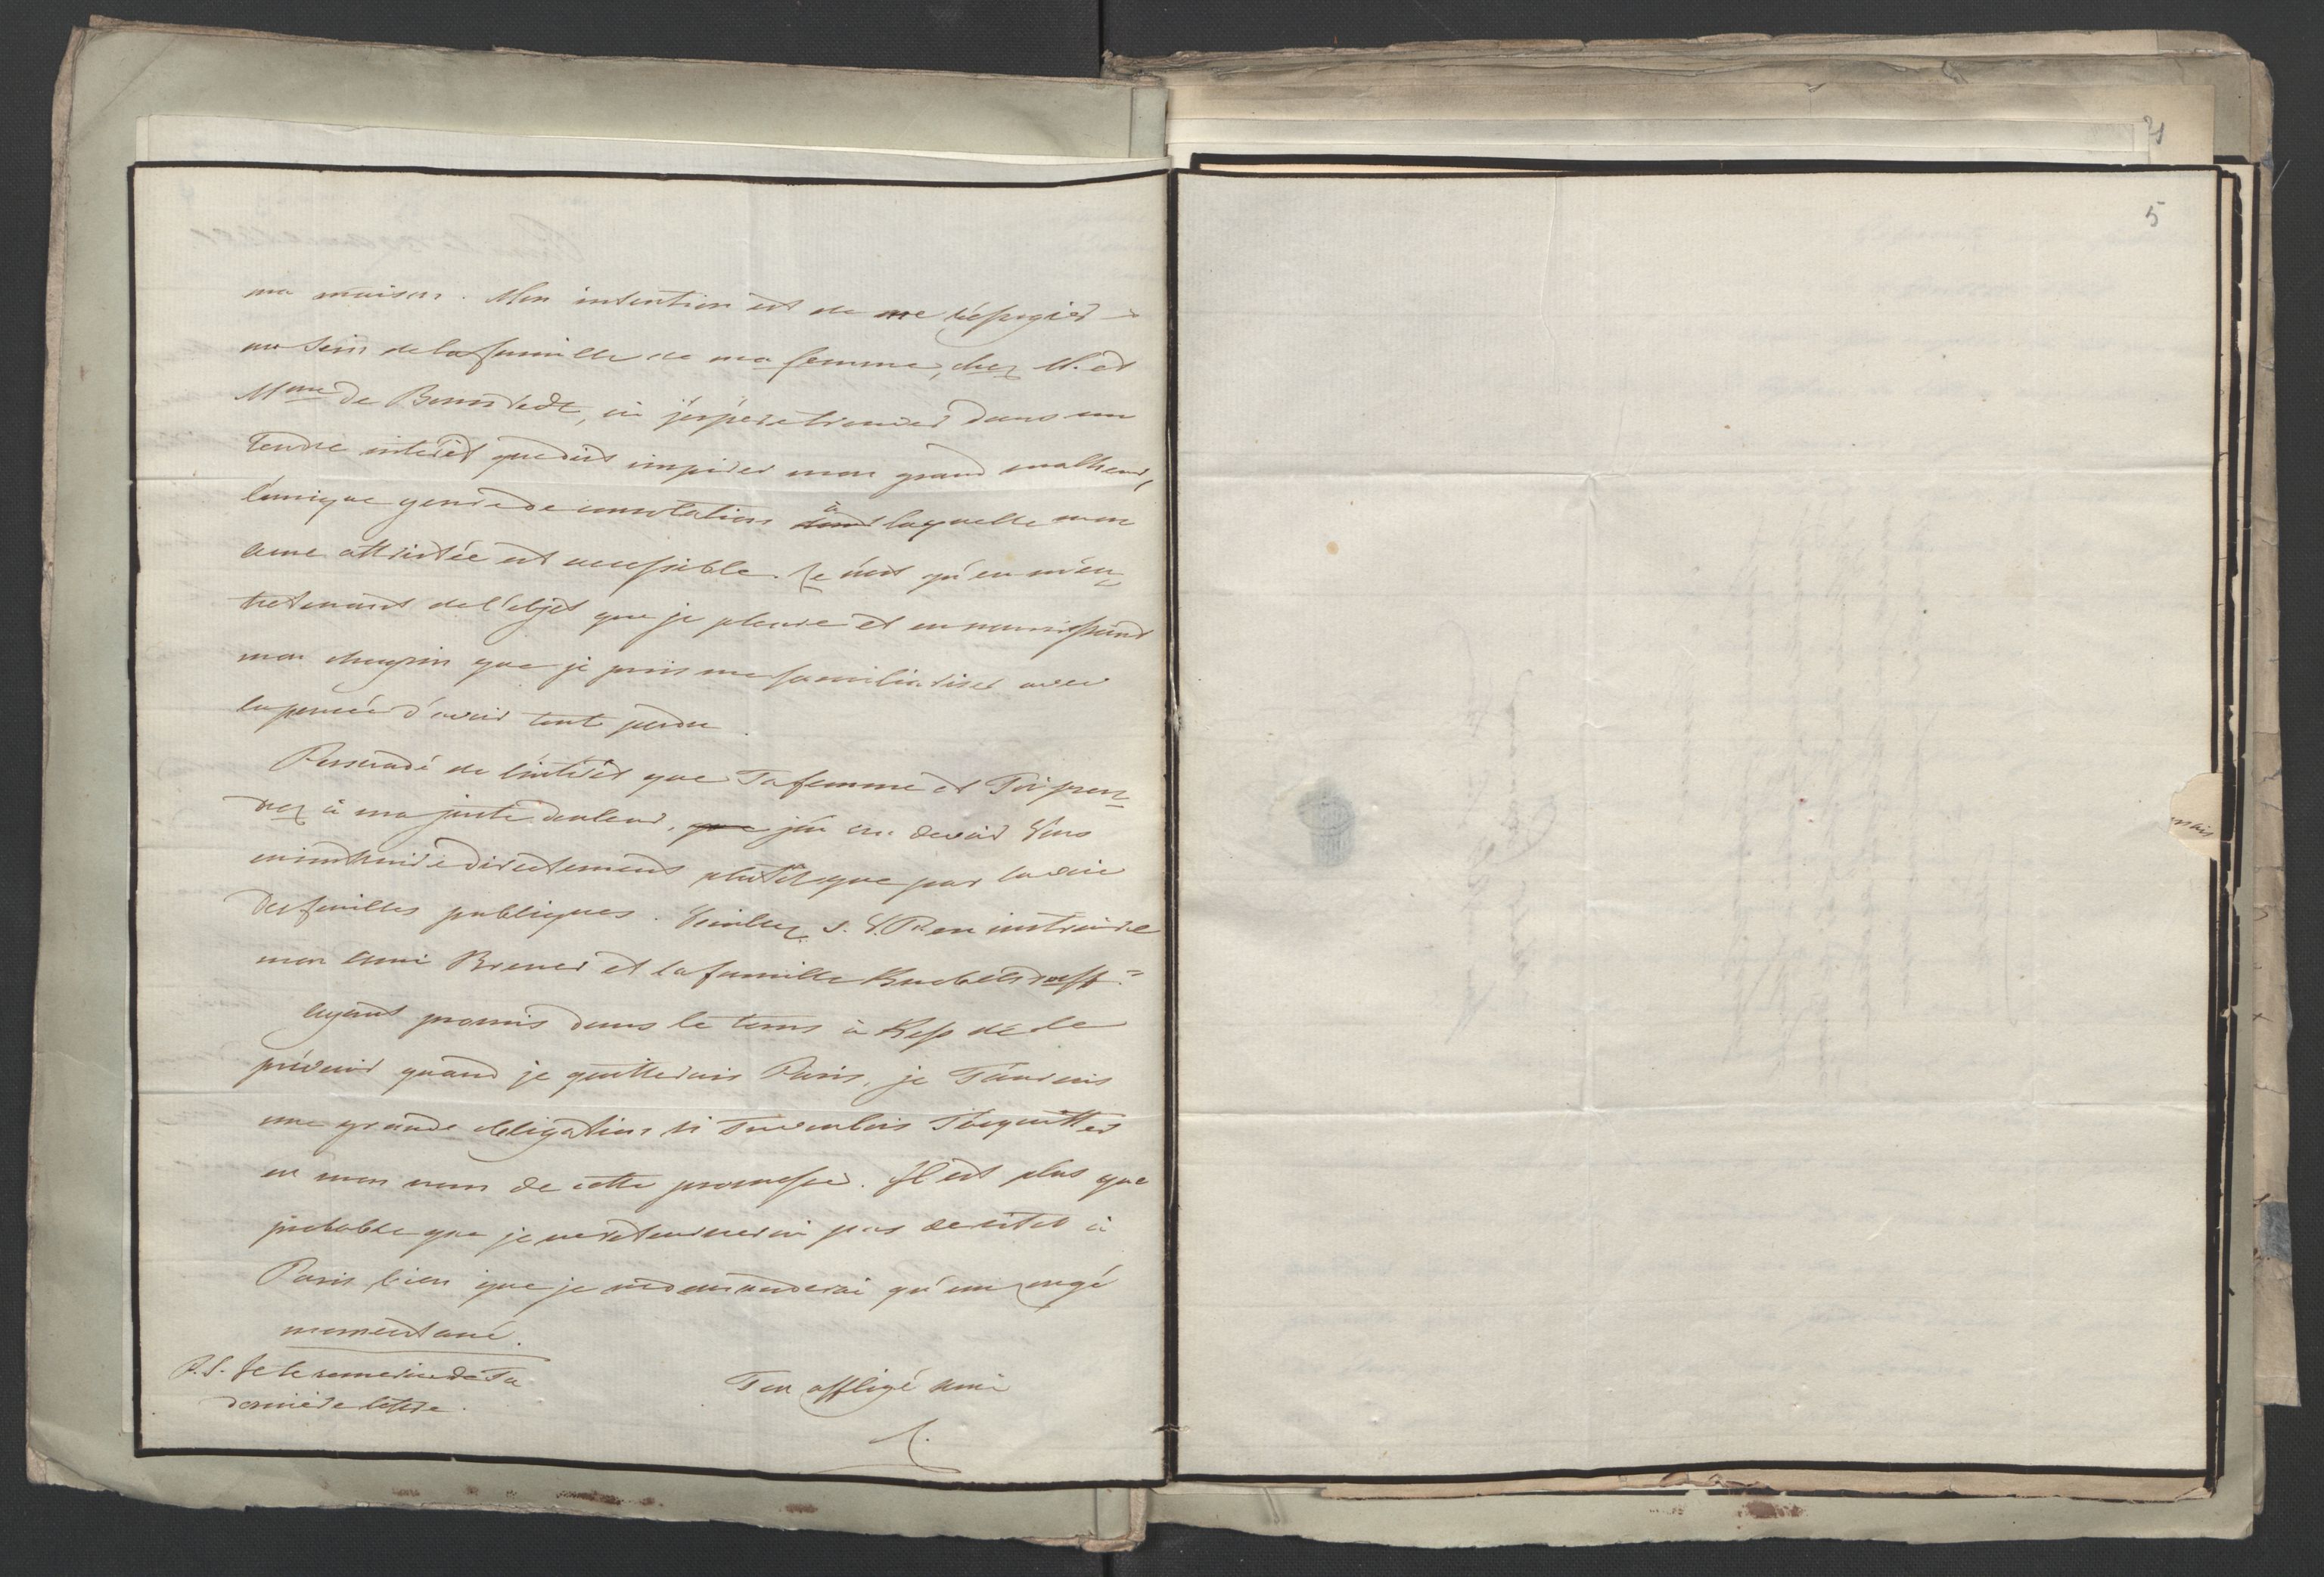 ma maison. Mon intention est de me réfugier
au sein de la famille de ma femme, chez M. et
Mme de Bernstedt, où j'éspere trouver dans un
tendre intérêt que doit inspirer mon grand malheur,
l'unique genre de consolation à laquelle mon
ame attristée est accessible. Ce n'est qu'en m'en-
tretenant de l'objet que je pleure et en nourrissant
mon chagrin que je puis me familiariser avec
la pensée d'avoir tout perdu.
Persuadé de l'intérêt que Ta femme et Toi pren-
drez à ma juste douleur, que j'ai cru devoir Vous
en instruire directement plutôt que par la voie
des feuilles publiques. Veuillez s. V. P. en instruire
mon ami Brener et la famille Knobelsdorff.
Ayant promis dans le tems à de le
prévenir quand je quitterais Paris, je T'aurais
une grande obligation si Tu voulais T'acquitter
en mon nom de cette promesse. Il est plus que
probable que je ne retournerai pas de sitot à
Paris bien que je ne demanderai qu'un congé
momentané.
Ton affligé ami
P.S. Je te remercie de Ta
dernière lettre.
5